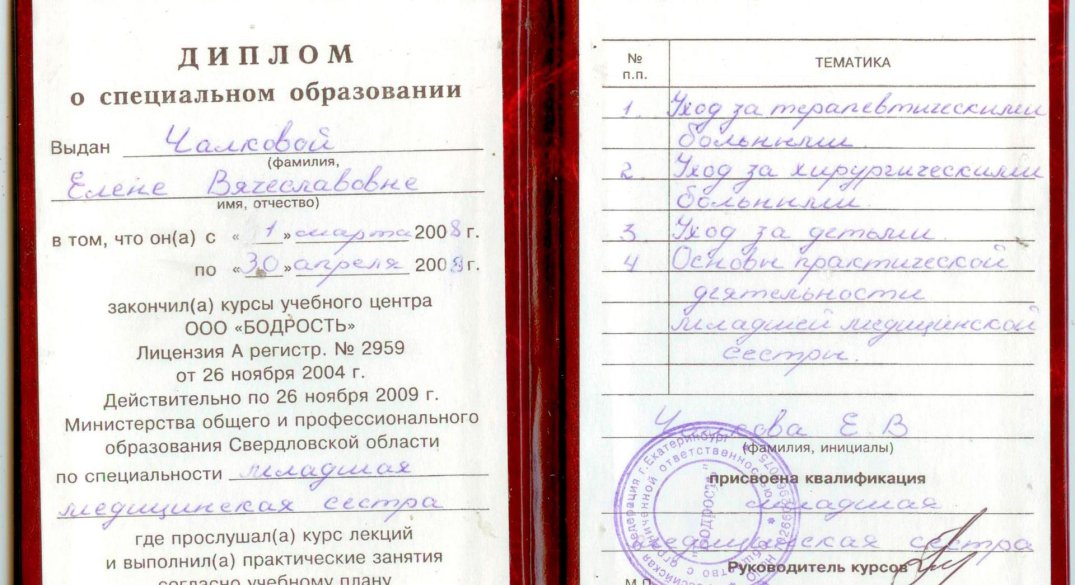 ДИПЛОМ
о специальном образовании
Выдан Чалковой
(фамилия,
Елене Вячеславовне
имя, отчество)
в том, что он(а) с «1» марта 2008 г.
по «30» апреля 2008 г.
закончил(а) курсы учебного центра
ООО «БОДРОСТЬ»
Лицензия А регистр. № 2959
от 26 ноября 2004 г.
Действительно по 26 ноября 2009 г.
Министерства общего и профессионального
образования Свердловской области
по специальности младшая
медицинская сестра
где прослушал(а) курс лекций
и выполнил(а) практические занятия
согласно учебному плану
№ п.п. ТЕМАТИКА
1. Уход за терапевтическими
больными.
2. Уход за хирургическими
больными.
3. Уход за детьми.
4 Основы практической
деятельности
младшей медицинской
сестры.
Чалкова Е. В
(фамилия, инициалы)
присвоена квалификация
младшая
медицинская сестра
Руководитель курсов
М.П.
"Бодрость"